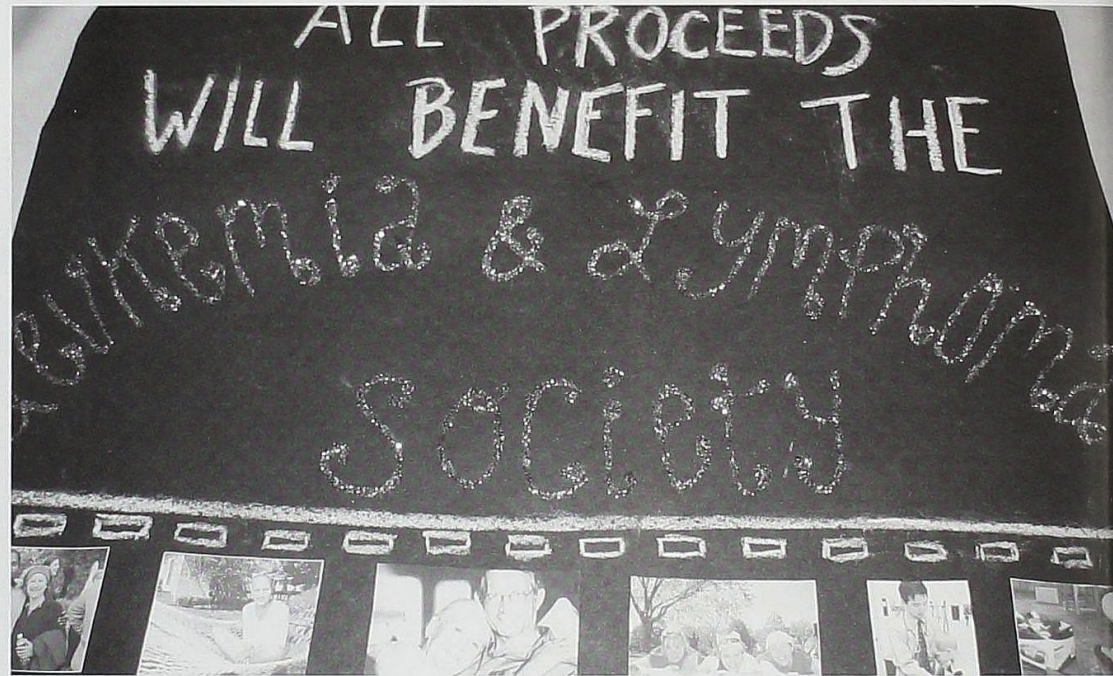 ALL PROCEEDS
WILL BENEFIT THE
Leukemia & Lymphoma
Society